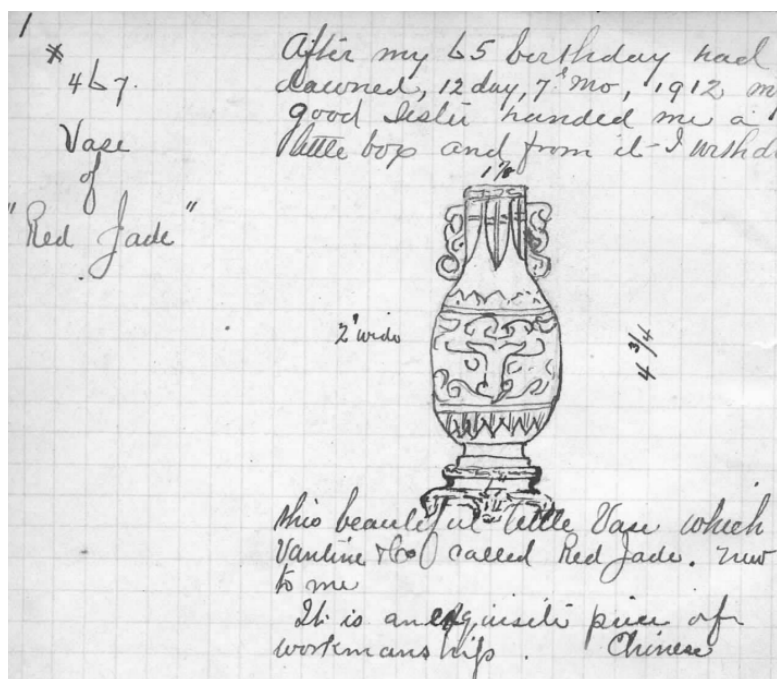 1
*
467.
Vase
of
"Red Jade"
After my 65 birthday had
dawned, 12 day, 7th Mo, 1912 m
good Sister handed me a
little box and from it I withd
1 7/8
2" wide
4 3/4
this beautiful little Vase which
Vantine & Co called Red Jade. new
to me
It is an exquisite piece of
workmanship. Chinese